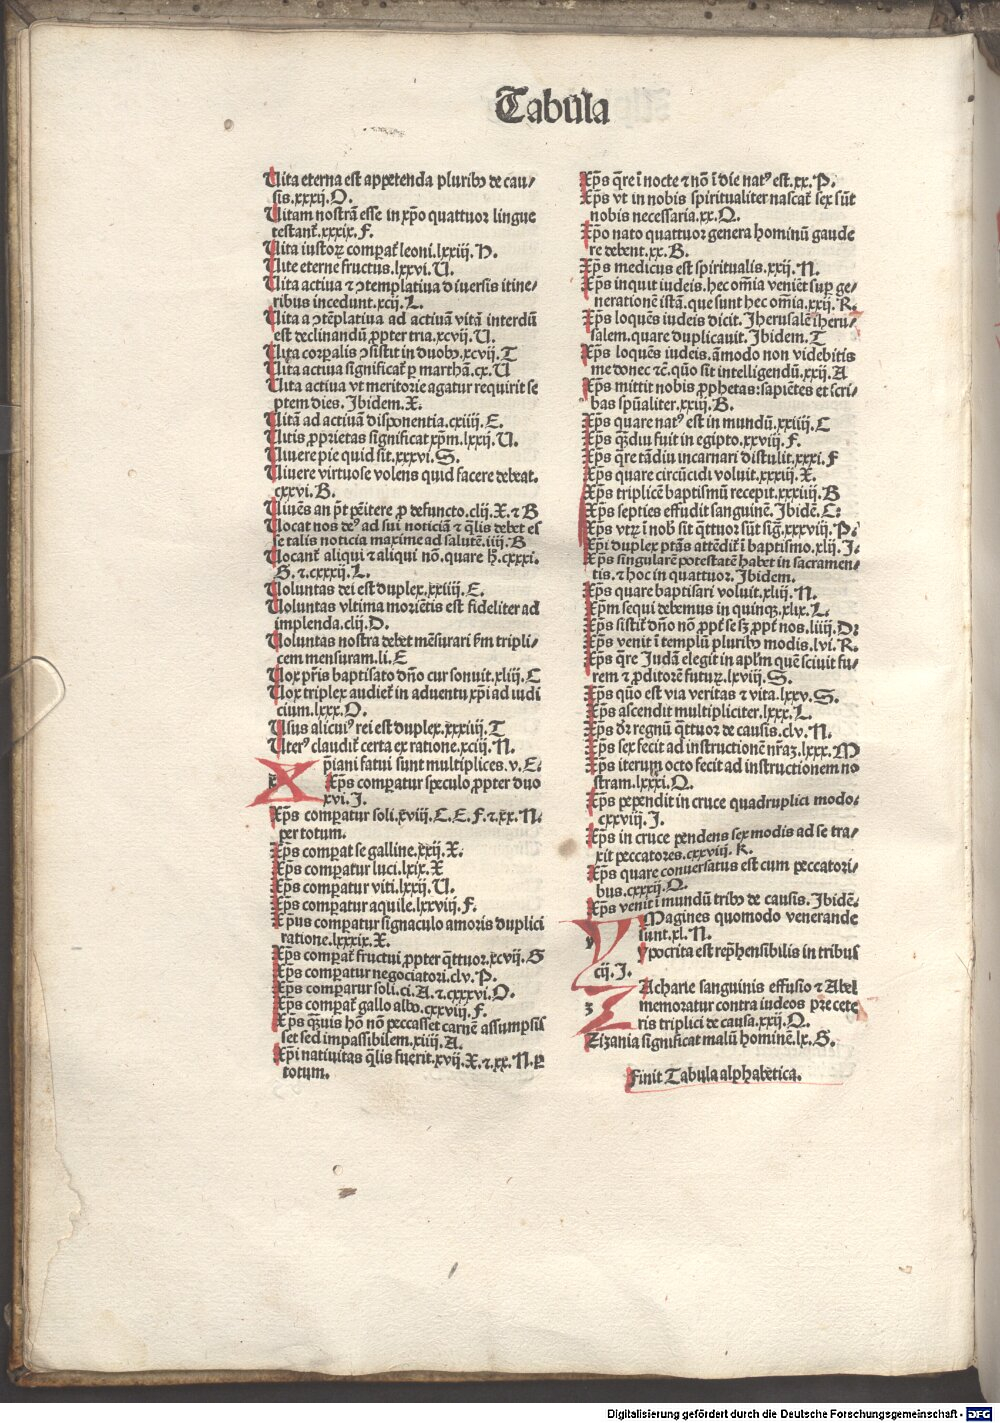 Tabula
Uita eterna est appetenda pluribꝰ de cau⸗
sis.xxxij.O.
Uitam nostrã esse in xp̃o quattuor lingue
testant᷑.xxxix.F.
Uita iustoꝝ comparat᷑ leoni.lxxiij.H.
Uite eterne fructus.lxxvi.U.
Uita actiua ⁊ ꝯtemplatiua diuersis itine⸗
ribus incedunt.xcij.L.
Uita a ꝯtẽplatiua ad actiuã vitã interdũ
est declinandũ ꝓpter tria.xcvij.U.
Uita corꝑalis ꝯsistit in duobꝰ.xcvij.T
Uita actiua significat᷑ ꝑ marthã.cx.U
Uita actiua vt meritorie agatur requirit se
ptem dies. Ibidem.X.
Uitã ad actiuã disponentia.cxiiij.E.
Uitis ꝓprietas significat xp̃m.lxxij.U.
Uiuere pie quid sit.xxxvi.S.
Uiuere virtuose volens quid facere debeat.
cxxvi.B.
Uiuẽs an põt peñitere ꝓ defuncto.clij.X.⁊ B
Uocat nos deꝰ ad sui noticiã ⁊ q̃lis debet es
se talis noticia maxime ad salutẽ.iiij.B
Uocant᷑ aliqui ⁊ aliqui nõ.quare h̃.cxxxi.
G.⁊.cxxxij.L.
Uoluntas dei est duplex.xxiiij.E.
Uoluntas vltima moriẽtis est fideliter ad
implenda.clij.D.
Uoluntas nostra debet mẽsurari ẜm tripli⸗
cem mensuram.li.E
Uox pr̃is baptisato dño cur sonuit.xliij.C
Uox triplex audiet᷑ in aduentu xp̃i ad iudi
cium.lxxx.O.
Usus alicuiꝰ rei est duplex.xxxiij.T
Uterꝰ claudit᷑ certa ex ratione.xciij.N.
X p̃iani fatui sunt multiplices.v.E.
Xp̃s comꝑatur speculo ꝓpter duo
xvi.I.
Xp̃s comꝑatur soli.xviij.C.E.F.⁊.xx.N.
per totum.
Xp̃s comꝑat se galline.xxij.X.
Xp̃s comꝑatur luci.lxix.X
Xp̃s comꝑatur viti.lxxij.U.
Xp̃s comꝑatur aquile.lxxviij.F.
Xp̃us comꝑatur signaculo amoris duplici
ratione.lxxxix.X.
Xp̃s comꝑat᷑ fructui ꝓpter q̃ttuor.xcvij.G
Xp̃s comꝑatur negociatori.clv.P.
Xp̃s comparatur soli.ci.A.⁊.cxxxvi.O.
Xp̃s comꝑat᷑ gallo albo.cxxviij.F.
Xp̃s q̃uis hõ nõ peccasset carnẽ assumpsis
set sed impassibilem.xiiij.A.
Xp̃i natiuitas q̃lis fuerit.xvij.X.⁊.xx.N.ꝑ
totum.
Xp̃s q̃re ĩ nocte ⁊ nõ ĩ die natꝰ est.xx.P.
Xp̃s vt in nobis spiritualiter nascat᷑ sex sũt
nobis necessaria.xx.Q.
Xp̃o nato quattuor genera hominũ gaude
re debent.xx.B.
Xp̃s medicus est spiritualis.xxij.N.
Xp̃s inquit iudeis.hec om̃ia veniẽt suꝑ ge⸗
nerationẽ istã.que sunt hec om̃ia.xxij.R.
Xp̃s loquẽs iudeis dicit.Iherusalẽ iheru⸗
salem.quare duplicauit. Ibidem.T
Xp̃s loquẽs iudeis.amodo non videbitis
me donec ⁊c̃.quõ sit intelligendũ.xxij.A
Xp̃s mittit nobis ꝓphetas:sapiẽtes et scri⸗
bas spũaliter.xxij.B.
Xp̃s quare natꝰ est in mundũ.xxiiij.C
Xp̃s q̃diu fuit in egipto.xxviij.F.
Xp̃s q̃re tãdiu incarnari distulit.xxxi.F
Xp̃s quare circũcidi voluit.xxxiij.X.
Xp̃s triplicẽ baptismũ recepit.xxxiiij.B
Xp̃s septies effudit sanguinẽ. Ibidẽ.C.
Xp̃s vtꝝ ĩ nob̃ sit q̃ttuor sũt sig̃.xxxviij.P.
Xp̃i duplex ptãs attẽdit᷑ ĩ baptismo.xlij.I.
Xp̃s singularẽ potestatẽ habet in sacramen⸗
tis.⁊ hoc in quattuor. Ibidem.
Xp̃s quare baptisari voluit.xliij.N.
Xp̃m sequi debemus in quinqꝫ.xlix.L.
Xp̃s sistit᷑ dño nõ ꝓpt᷑ se sꝫ ꝓpt᷑ nos.liiij.D.
Xp̃s venit ĩ templũ pluribꝰ modis.lvi.R.
Xp̃s q̃re Judã elegit in apl̃m quẽ sciuit fu⸗
rem ⁊ ꝓditorẽ futuꝝ.lxviij.S.
Xp̃s quõ est via veritas ⁊ vita.lxxv.S.
Xp̃s ascendit multipliciter.lxxx.L.
Xp̃s dr̃ regnũ q̃ttuor de causis.clv.N.
Xp̃s sex fecit ad instructionẽ nr̃aꝫ.lxxx.M
Xp̃s iterum octo fecit ad instructionem no
stram.lxxxi.Q.
Xp̃s pependit in cruce quadruplici modo.
cxxviij.I.
Xp̃s in cruce pendens sex modis ad se tra⸗
xit peccatores.cxxviij.K.
Xp̃s quare conuersatus est cum peccatori⸗
bus.cxxxij.Q.
Xp̃s venit ĩ mundũ tribꝰ de causis. Ibidẽ.
Y Magines quomodo venerande
sunt.xl.N.
Ypocrita est rep̃hensibilis in tribus
cij.I.
Z Acharie sanguinis effusio ⁊ Abel
memoratur contra iudeos pre cete
ris triplici de causa.xxij.Q.
Zizania significat malũ hominẽ.lx.G.
Finit Tabula alphabetica.
Digitalisierung gefördert durch die Deutsche Forschungsgemeinschaft - DFG